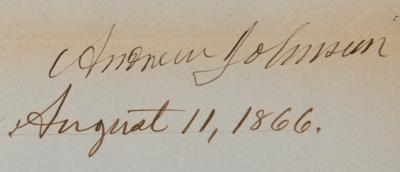 Andrew Johnson
August 11, 1866.